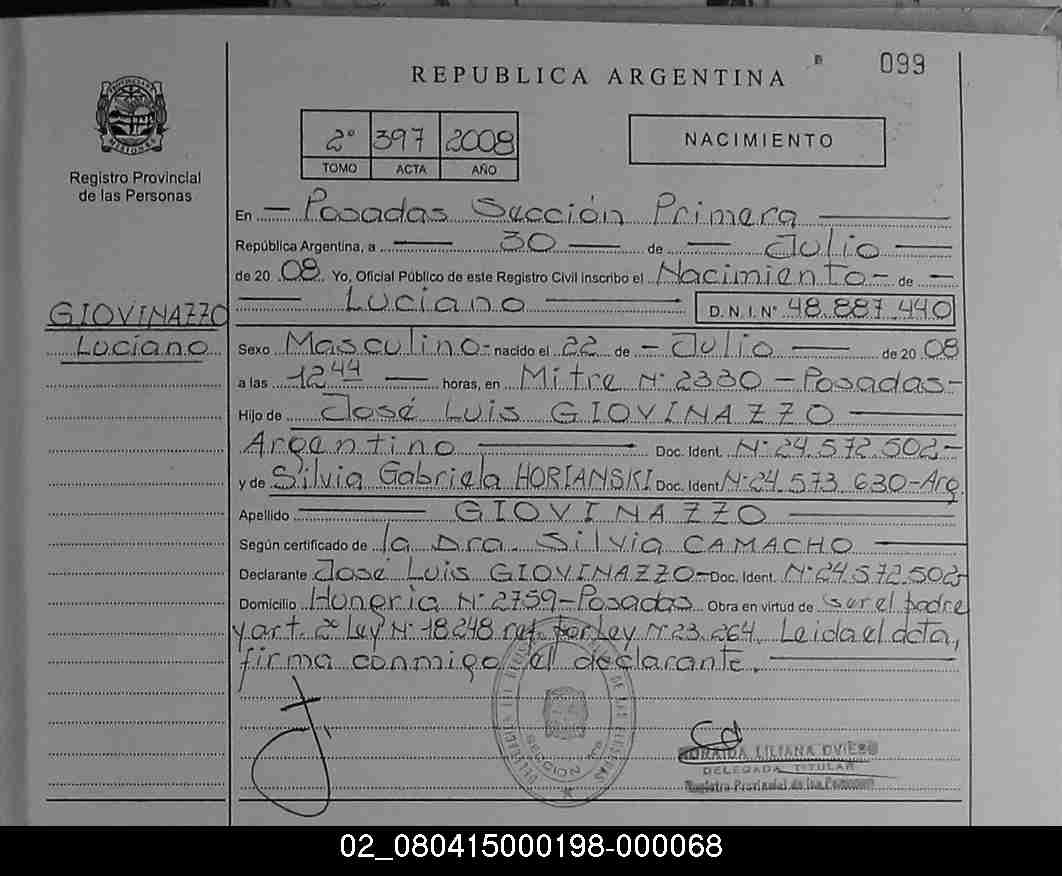 099
REPUBLICA ARGENTINA
2° 397 2008
TOMO ACTA AÑO
NACIMIENTO
MISIONES
Registro Provincial
de las Personas
En — Posadas Sección Primera —
República Argentina, a — 30 — de — Julio —
de 20 08. Yo, Oficial Público de este Registro Civil inscribo el Nacimiento — de —
— Luciano — D. N. I. N° 48.887.440
GIOVINAZZO
Luciano
Sexo Masculino - nacido el 22 de — Julio — de 20 08
a las 12 44 — horas, en Mitre N° 2330 — Posadas —
Hijo de José Luis GIOVINAZZO —
Argentino — Doc. Ident. N° 24.572.502 —
y de Silvia Gabriela HORIANSKI Doc. Ident N° 24.573.630 - Arg.
Apellido — GIOVINAZZO —
Según certificado de la Dra. Silvia CAMACHO —
Declarante José Luis GIOVINAZZO — Doc. Ident. N° 24.572.502
Domicilio Hungría N° 2759 — Posadas Obra en virtud de ser el padre
y art. 2° Ley N° 18.248 ref. por Ley N° 23.264. Leida el acta,
firma conmigo el declarante. —
SECCION
LILIANA OVIEDO
DELEGADA TITULAR
Registro Provincial de las Personas
02_080415000198-000068